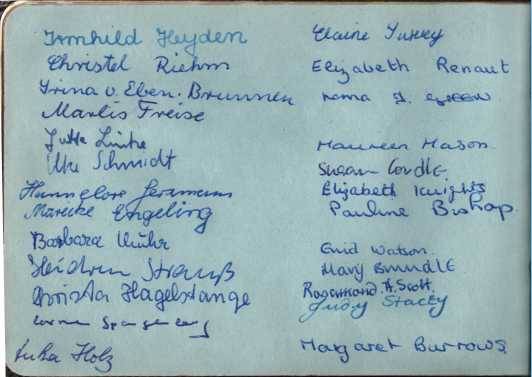 Irmhild Heyden
Christel Riehm
Irina v. Eben. Brunnen
Marlis Freise
Jutta Linke
Ute Schmidt
Hannelore
Mareike Engeling
Barbara
Heidrun Strauß
Christa Hagelstange
Holz
Elaine
Elizabeth Renaut
Maureen Mason
Susan
Elizabeth Knights
Pauline Bishop
Enid Watson.
Mary Brundle
Rosamond A. Scott.
Judy Stacey
Margaret Burrows.